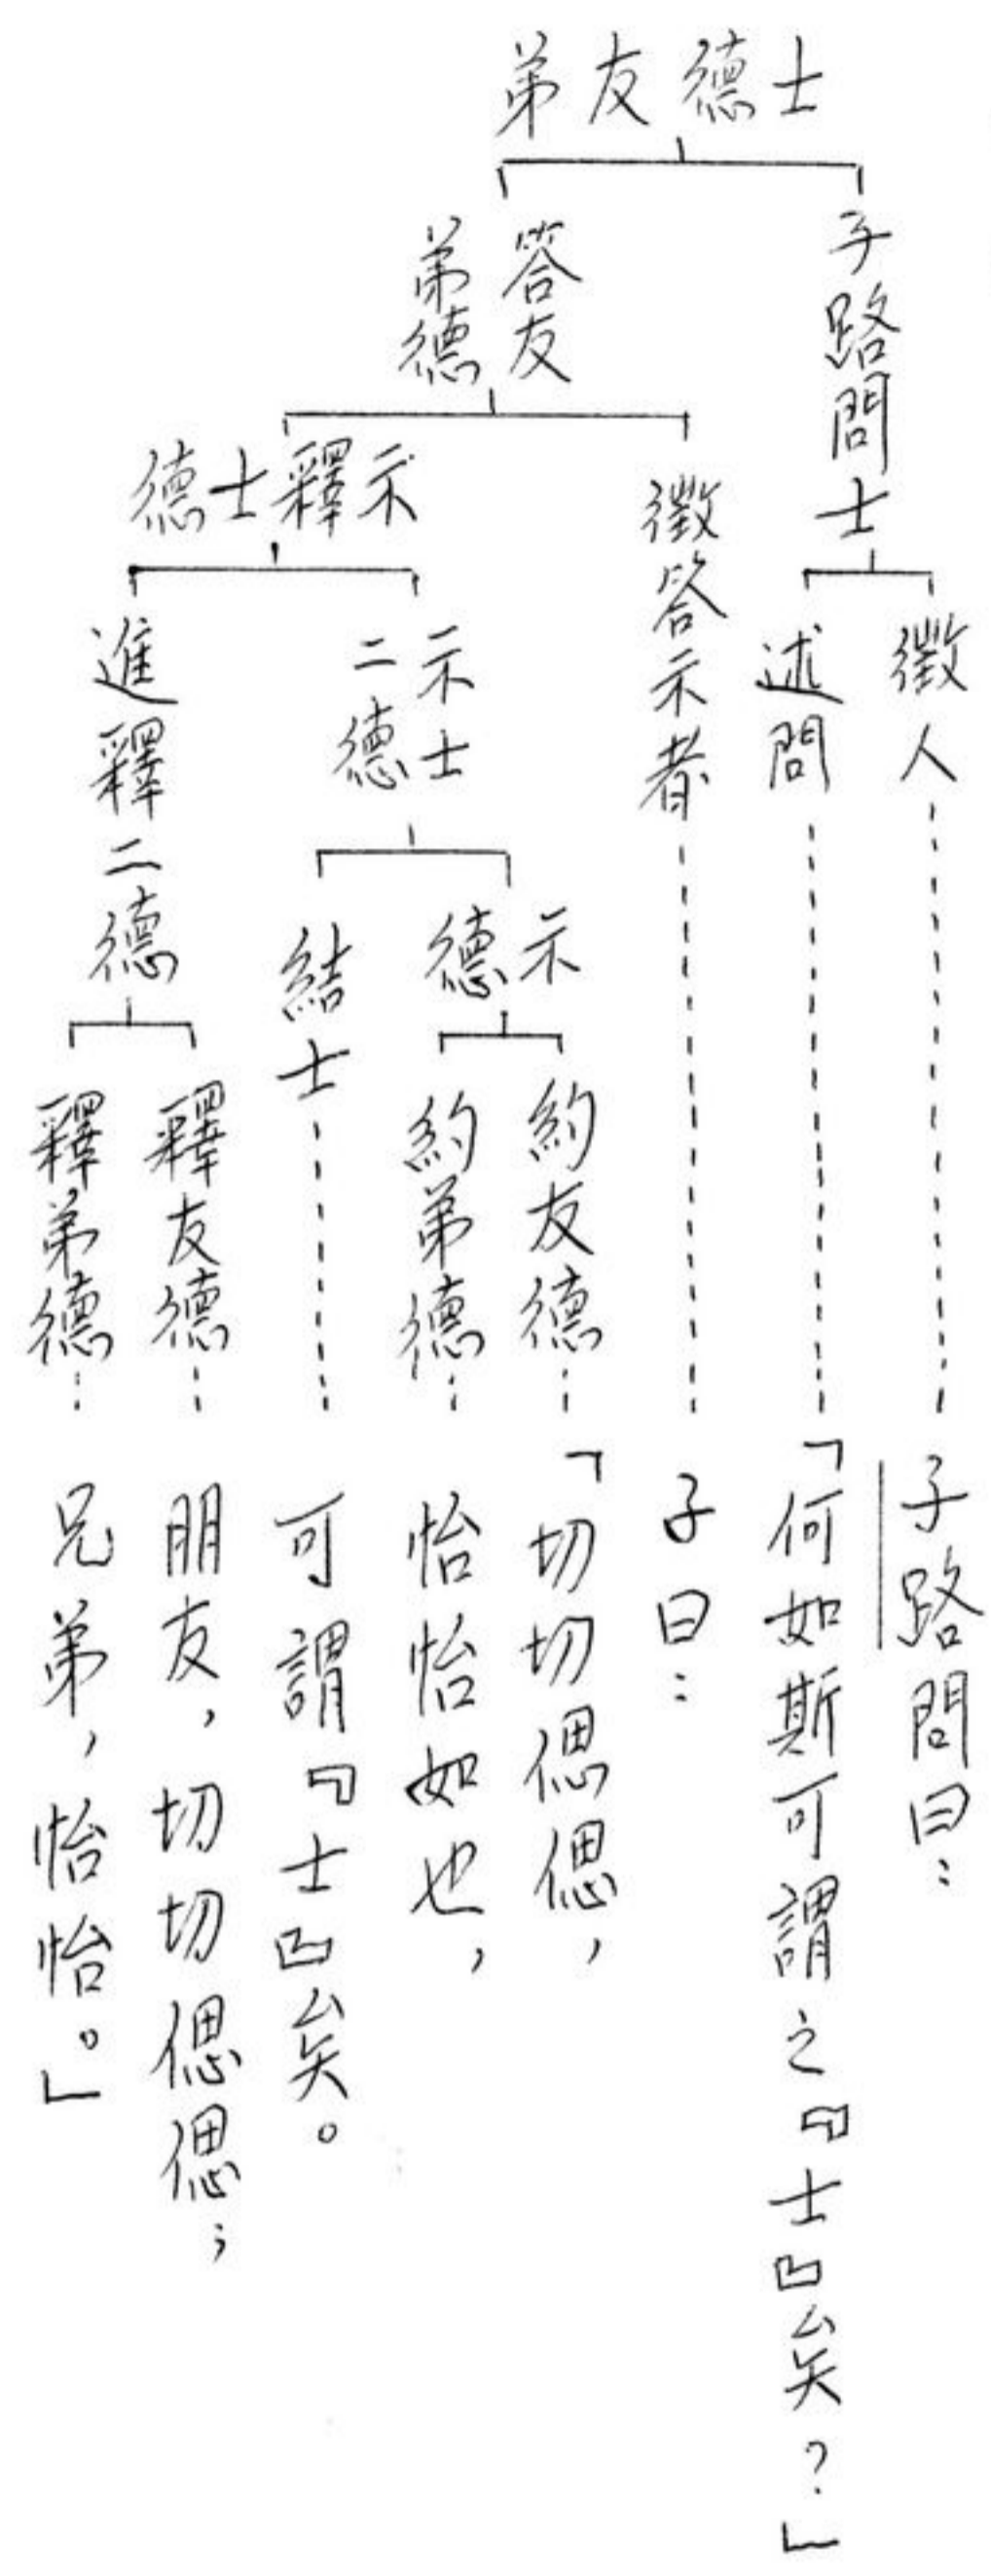 士德友弟
子路問士
徵人
子路問曰：
述問
「何如斯可謂之『士』矣？」
答友
弟德
徵答示者
子曰：
示釋士德
示士
二德
示德
約友德
「切切偲偲，
約弟德
怡怡如也，
結士
可謂『士』矣。
進釋二德
釋友德
朋友，切切偲偲；
釋弟德
兄弟，怡怡。」